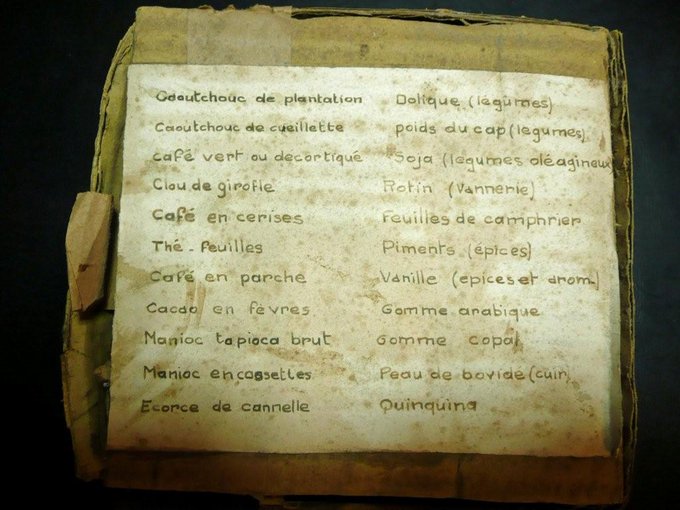 Caoutchouc de plantation
Caoutchouc de cueillette
Café vert ou decortiqué
Clou de girofle
Café en cerises
Thé - feuilles
Café en parche
Cacao en fèvres
Manioc tapioca brut
Manioc en cossettes
Ecorce de cannelle
Dolique (légumes)
poids du cap (legumes)
Soja (legumes oléagineux
Rotin (Vannerie)
Feuilles de camphrier
Piments (épices)
Vanille (epices et arom.)
Gomme arabique
Gomme copal
Peau de bovidé (cuir)
Quinquina